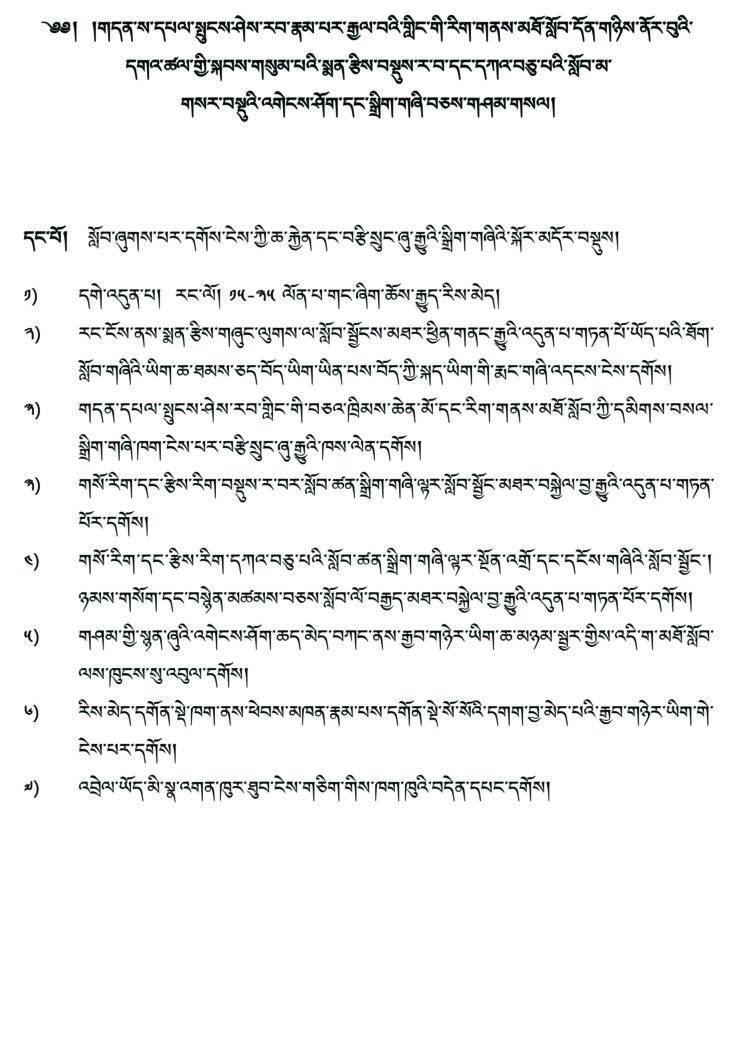 ༄༅། །གདན་ས་དཔལ་སྤུངས་ཤེས་རབ་རྣམ་པར་རྒྱལ་བའི་གླིང་གི་རིག་གནས་མཐོ་སློབ་དོན་གཉིས་ནོར་བུའི་
དགའ་ཚལ་གྱི་སྐབས་གསུམ་པའི་སྨན་རྩིས་བསྡུས་ར་བ་དང་དཀའ་བཅུ་པའི་སློབ་མ་
གསར་བསྡུའི་འགེངས་ཤོག་དང་སྒྲིག་གཞི་བཅས་གཤམ་གསལ།
དང་པོ། སློབ་ཞུགས་པར་དགོས་ངེས་ཀྱི་ཆ་རྐྱེན་དང་བརྩི་སྲུང་ཞུ་རྒྱུའི་སྒྲིག་གཞིའི་སྐོར་མདོར་བསྡུས།
༡) དགེ་འདུན་པ། རང་ལོ། ༡༥-༣༥ ལོན་པ་གང་ཞིག་ཆོས་རྒྱུད་རིས་མེད།
༢) རང་ངོས་ནས་སྨན་རྩིས་གཞུང་ལུགས་ལ་སློབ་སྦྱོངས་མཐར་ཕྱིན་གནང་རྒྱུའི་འདུན་པ་གཏན་པོ་ཡོད་པའི་ཐོག་
སློབ་གཞིའི་ཡིག་ཆ་ཐམས་ཅད་བོད་ཡིག་ཡིན་པས་བོད་ཀྱི་སྐད་ཡིག་གི་རྨང་གཞི་འདངས་ངེས་དགོས།
༣) གདན་དཔལ་སྤུངས་ཤེས་རབ་གླིང་གི་བཅའ་ཁྲིམས་ཆེན་མོ་དང་རིག་གནས་མཐོ་སློབ་ཀྱི་དམིགས་བསལ་
སྒྲིག་གཞི་ཁག་ངེས་པར་བརྩི་སྲུང་ཞུ་རྒྱུའི་ཁས་ལེན་དགོས།
༣) གསོ་རིག་དང་རྩིས་རིག་བསྡུས་ར་བར་སློབ་ཚན་སྒྲིག་གཞི་ལྟར་སློབ་སྦྱོང་མཐར་བསྐྱེལ་བྱ་རྒྱུའི་འདུན་པ་གཏན་
པོར་དགོས།
༤) གསོ་རིག་དང་རྩིས་རིག་དཀའ་བཅུ་པའི་སློབ་ཚན་སྒྲིག་གཞི་ལྟར་སྔོན་འགྲོ་དང་དངོས་གཞིའི་སློབ་སྦྱོང་།
ཉམས་གསོག་དང་བསྙེན་མཚམས་བཅས་སློབ་ལོ་བརྒྱད་མཐར་བསྐྱེལ་བྱ་རྒྱུའི་འདུན་པ་གཏན་པོར་དགོས།
༥) གཤམ་གྱི་སྙན་ཞུའི་འགེངས་ཤོག་ཆད་མེད་བཀང་ནས་རྒྱབ་གཉེར་ཡིག་ཆ་མཉམ་སྦྱར་གྱིས་འདི་ག་མཐོ་སློབ་
ལས་ཁུངས་སུ་འབུལ་དགོས།
༦) རིས་མེད་དགོན་སྡེ་ཁག་ནས་ཕེབས་མཁན་རྣམ་པས་དགོན་སྡེ་སོ་སོའི་དགག་བྱ་མེད་པའི་རྒྱབ་གཉེར་ཡིག་གེ་
ངེས་པར་དགོས།
༧) འབྲེལ་ཡོད་མི་སྣ་འགན་ཁུར་ཐུབ་ངེས་གཅིག་གིས་ཁག་ཁུའི་བདེན་དཔང་དགོས།